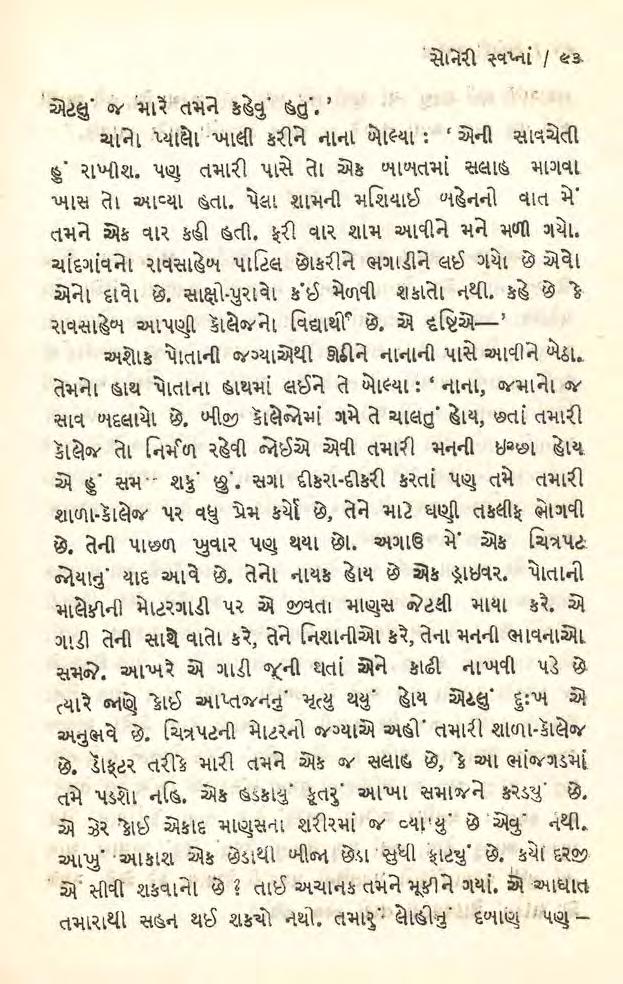 સોનેરી સ્વપ્નાં / ૯૩
'એટલું જ મારે તમને કહેવું હતું.'
ચાનો પ્યાલો ખાલી કરીને નાના બોલ્યા : 'એની સાવચેતી
હું રાખીશ. પણ તમારી પાસે તો એક બાબતમાં સલાહ માગવા
ખાસ તો આવ્યા હતા. પેલા શામની મશિયાઈ બહેનની વાત મેં
તમને એક વાર કહી હતી. ફરી વાર શામ આવીને મને મળી ગયો.
ચાંદગાંવનો રાવસાહેબ પાટિલ છોકરીને ભગાડીને લઈ ગયો છે એવો
એનો દાવો છે. સાક્ષી-પુરાવો કંઈ મેળવી શકાતો નથી. કહે છે કે
રાવસાહેબ આપણી કૉલેજનો વિદ્યાર્થી છે. એ દૃષ્ટિએ—'
અશોક પોતાની જગ્યાએથી ઊઠીને નાનાની પાસે આવીને બેઠા.
તેમનો હાથ પોતાના હાથમાં લઈને તે બોલ્યા : 'નાના, જમાનો જ
સાવ બદલાયો છે. બીજી કૉલેજોમાં ગમે તે ચાલતું હોય, છતાં તમારી
કૉલેજ તો નિર્મળ રહેવી જોઈએ એવી તમારી મનની ઇચ્છા હોય
એ હું સમ શકું છું. સગા દીકરા-દીકરી કરતાં પણ તમે તમારી
શાળા-કૉલેજ પર વધુ પ્રેમ કર્યો છે, તેને માટે ઘણી તકલીફ ભોગવી
છે. તેની પાછળ ખુવાર પણ થયા છો. અગાઉ મેં એક ચિત્રપટ
જોયાનું યાદ આવે છે. તેનો નાયક હોય છે એક ડ્રાઇવર. પોતાની
માલેકીની મોટરગાડી પર એ જીવતા માણસ જેટલી માયા કરે. એ
ગાડી તેની સાથે વાતો કરે, તેને નિશાનીઓ કરે, તેના મનની ભાવનાઓ
સમજે. આખરે એ ગાડી જૂની થતાં એને કાઢી નાખવી પડે છે
ત્યારે જાણે કોઈ આપ્તજનનું મૃત્યુ થયું હોય એટલું દુઃખ એ
અનુભવે છે. ચિત્રપટની મોટરની જગ્યાએ અહીં તમારી શાળા-કૉલેજ
છે. ડૉક્ટર તરીકે મારી તમને એક જ સલાહ છે, કે આ ભાંજગડમાં
તમે પડશો નહિ. એક હડકાયું કૂતરું આખા સમાજને કરડયું છે.
એ ઝેર કોઈ એકાદ માણસના શરીરમાં જ વ્યાપ્યું છે એવું નથી.
આખું આકાશ એક છેડાથી બીજા છેડા સુધી ફાટયું છે. કયો દરજી
એ સીવી શકવાનો છે ? તાઈ અચાનક તમને મૂકીને ગયાં. એ આઘાત
તમારાથી સહન થઈ શક્યો નથી. તમારું લોહીનું દબાણ પણ –